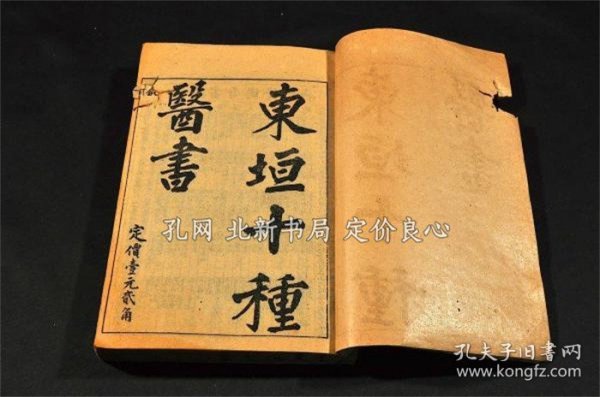 東垣十種
醫書
定價壹元貳角
孔网 北新书局 定价良心
孔夫子旧書网
www.kongfz.com